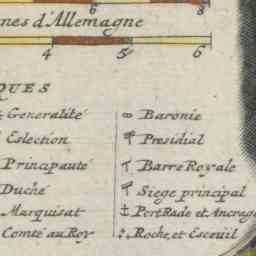 6 8
nes d'Allemagne
4 5 6
QUES
Generalité
Eslection
Principauté
Duché
Marquisat
Comté au Roy
Baronie
Presidial
Barre Royale
Siege principal
Port Rade et Ancrag
Roche, et Esceuil